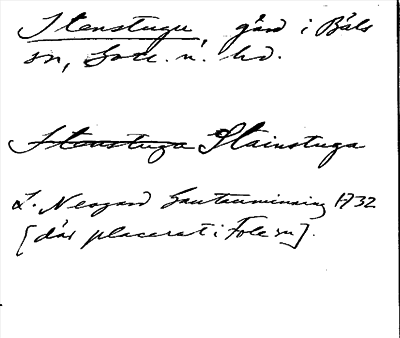 Stenstugu, gård i Bäls
sn, Gotl. n. hd.
Stenstuga Stainstuga
L. Neogard Gautauminning 1732
[där placerat i Fole sn].